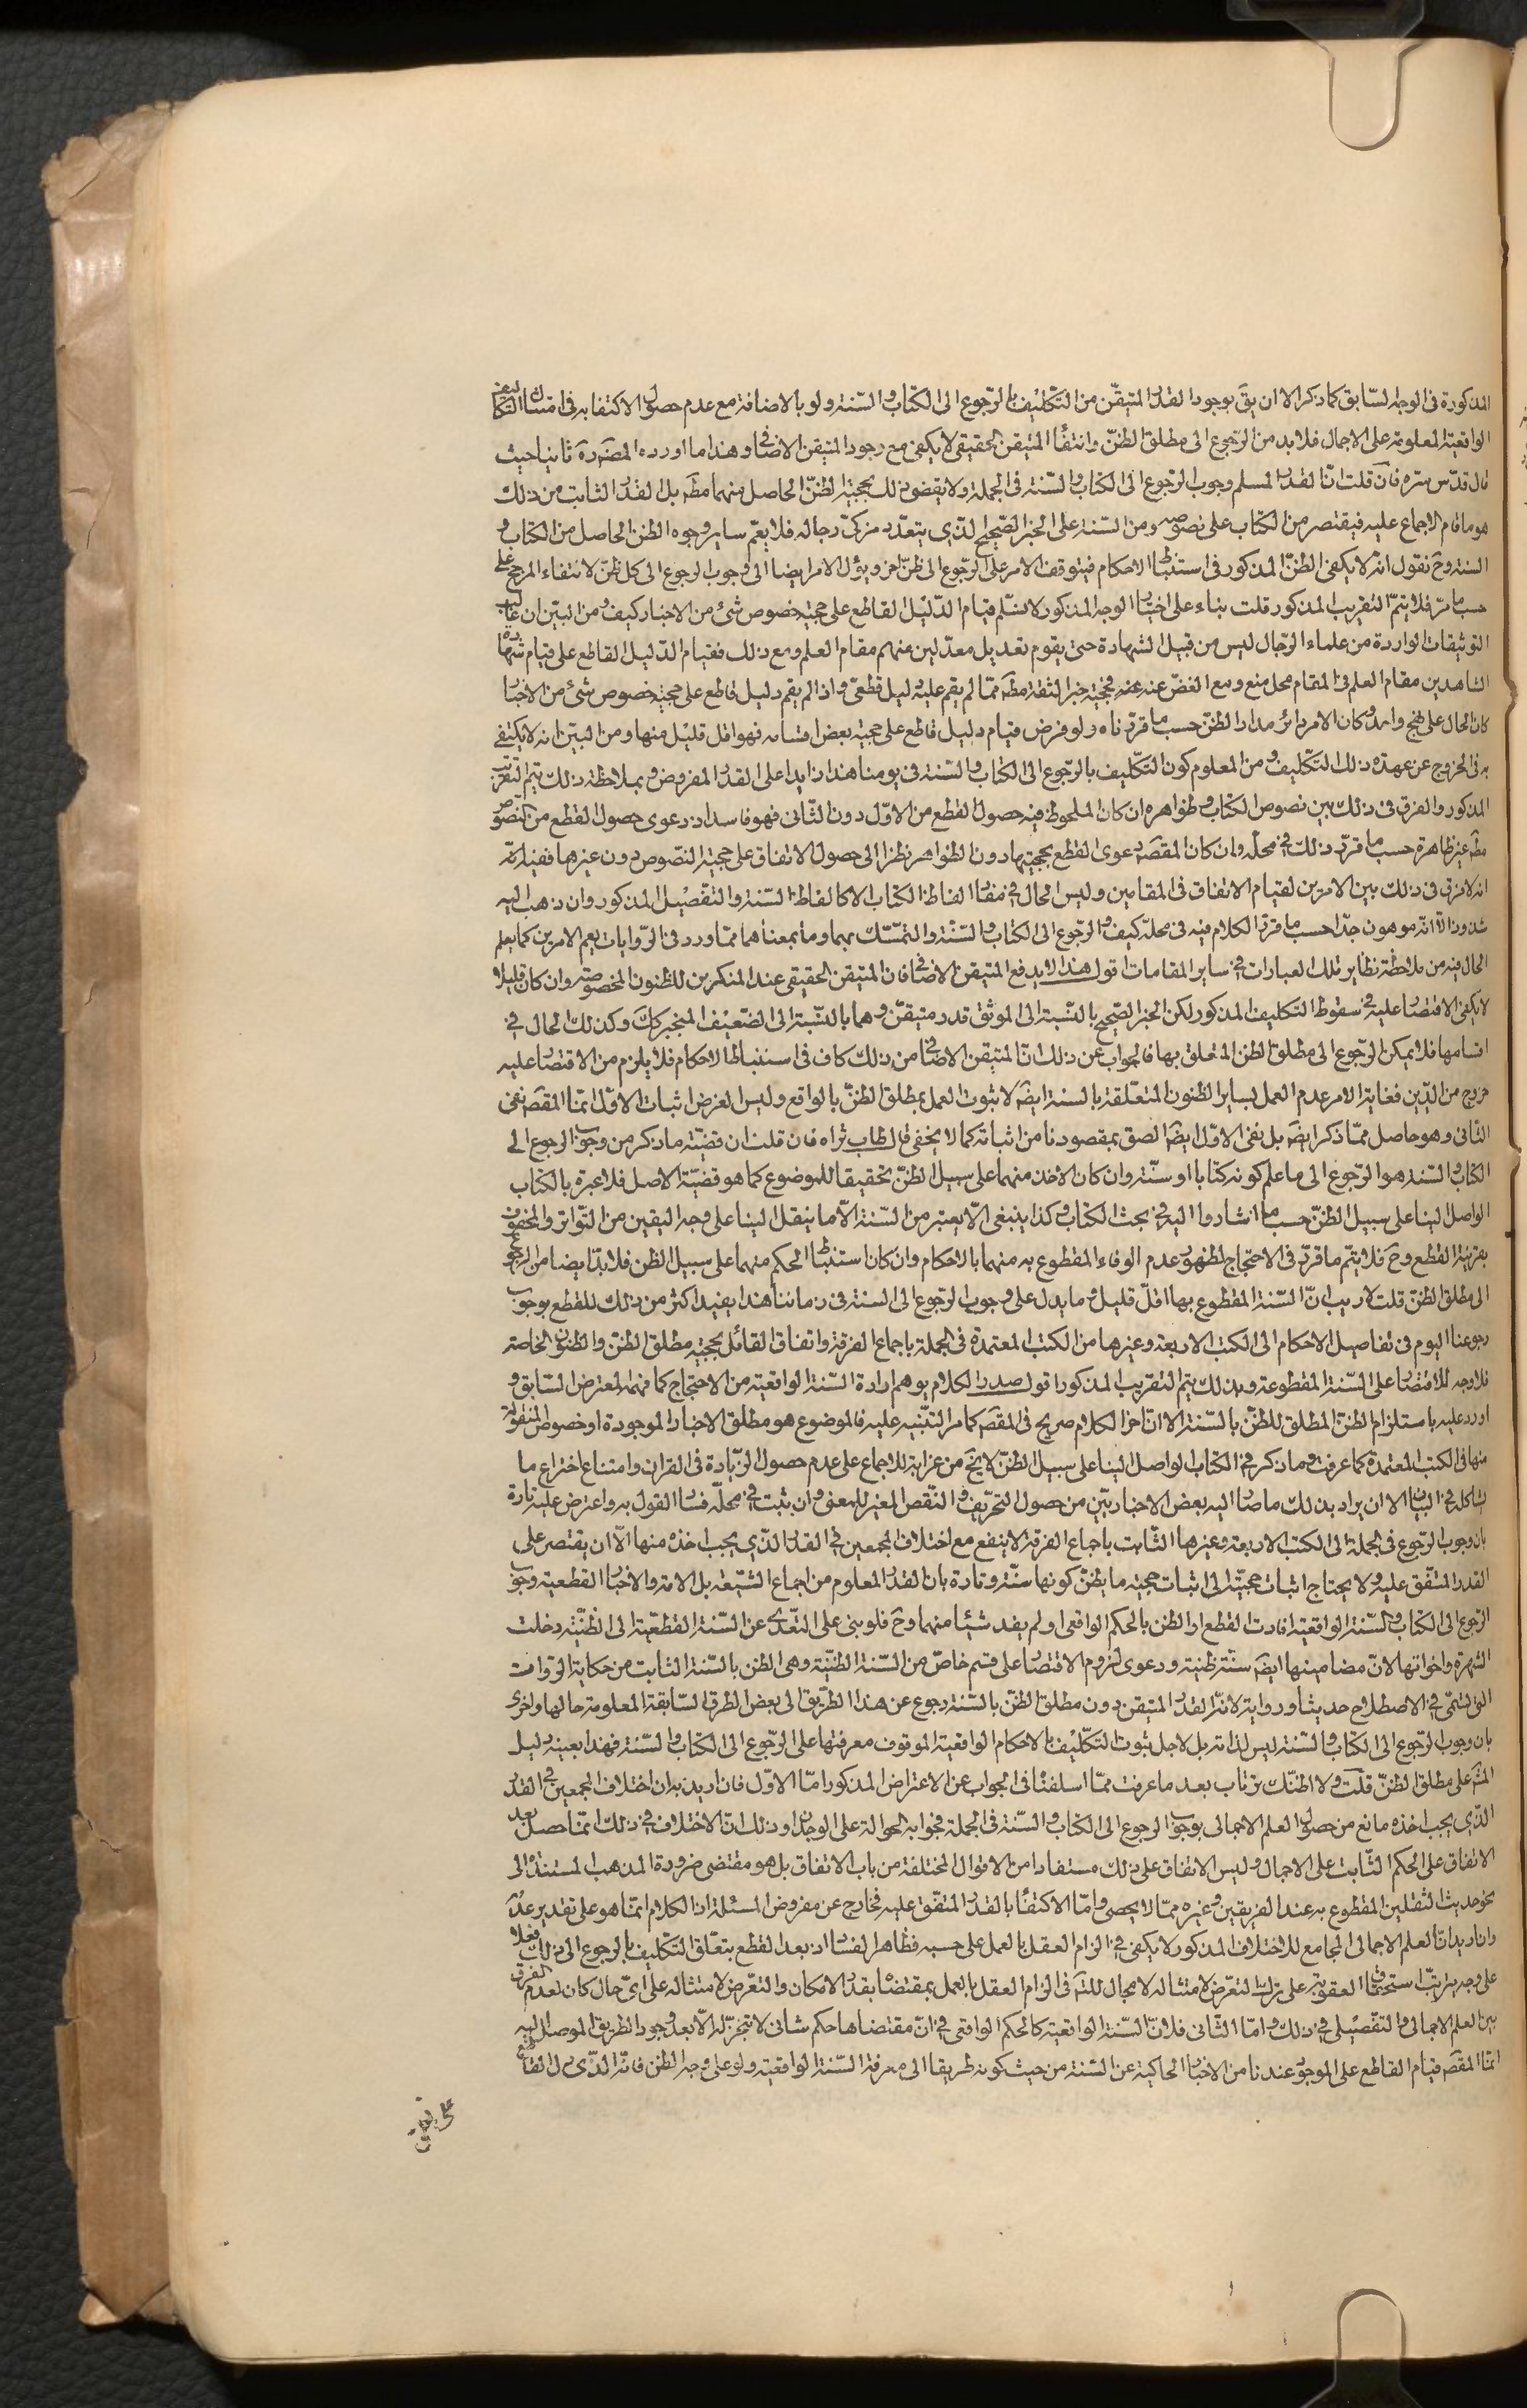 المذكورة فى الوجه السّابق كما ذكر الا ان يقَ بوجود القدر المتيقّن من التّكليف بالرّجوع الى الكتاب والسّنة ولو بالاضافة مع عدم حصول الاكتفا به فى امتثال التكاليف
الواقعيّة المعلومة على الاجمال فلا بد من الرّجوع الى مطلق الظنّ وانتفاء المتيقن الحقيقى لا يكفى مع وجود المتيقن الاضافى وهذا ما اورده المصَ رهَ ثانيا حيث
قال قدّس سرّه فان قلت انّ القدر المسلم وجوب الرّجوع الى الكتاب والسّنة فى الجملة ولا يقضى ذلك بحجيّة الظنّ الحاصل منهما مطَ بل القدر الثابت من ذلك
هو ما قام الاجماع عليه فيقتصر من الكتاب على نصوصه ومن السّنة على الخبر الصّحيح الذّى يتعدّد مزكّى رجاله فلا يعمّ ساير وجوه الظن الحاصل من الكتاب و
السّنة وحَ نقول انّه لا يكفى الظنّ المذكور فى استنباط الاحكام فيتوقف الامر على الرّجوع الى ظنّ اخر ويؤل الامر ايضا الى وجوب الرجوع الى كل ظنّ لانتفاء المرجح على
حسب ما مرّ فلا يتمّ التقريب المذكور قلت بناء على اختيار الوجه المذكور لا نسّلم قيام الدّليل القاطع على حجية خصوص شئ من الاخبار كيف ومن البيّن ان غالب
التوثيقات الواردة من علماء الرّجال ليس من قبيل الشهادة حتى يقوم تعديل معدّلين منهم مقام العلم ومع ذلك فقيام الدّليل القاطع على قيام شهادة
الشاهدين مقام العلم فى المقام محل منع ومع الغضّ عنه فحجيّة خبر الثقة مطَ ممّا لم يقم عليه دليل قطعىّ واذا لم يقم دليل قاطع على حجية خصوص شئ من الاخبار
كان الحال على نهج واحد وكان الامر دائر مدار الظنّ حسب ما قررناه ولو فرض قيام دليل قاطع على حجيّة بعض اقسامه فهو اقل قليل منها ومن البيّن انه لا يكتفى
به فى الخروج عن عهدة ذلك التّكليف ومن المعلوم كون التّكليف بالرّجوع الى الكتاب والسّنة فى يومنا هذا زايدا على القدر المفروض وبملاحظة ذلك يتم التقريب
المذكور والفرق فى ذلك بين نصوص الكتاب وظواهره ان كان الملحوظ فيه حصول القطع من الاوّل دون الثّانى فهو فاسد اذ دعوى حصول القطع من النّصوص
مطَ غير ظاهرة حسب ما قرّر ذلك فى محلّه وان كان المقصَ دعوى القطع بحجيتها دون الظواهر نظرا الى حصول الاتفاق على حجية النّصوص دون غيرها ففيه
انه لا فرق فى ذلك بين الامرين لقيام الاتفاق فى المقامين وليس الحال فى مفاد الفاظ الكتاب الا كالفاظ السّنة والتفصيل المذكور وان ذهب اليه
شذوذ الا انّه موهون جدّا حسب ما قرّر الكلام فيه فى محلّه كيف والرّجوع الى الكتاب والسّنة والتمّسّك بهما وما بمعناهما ممّا ورد فى الرّوايات يعم الامرين كما يعلم
الحال فيه من ملاحظة نظاير تلك العبارات فى ساير المقامات اقول هذا لا يدفع المتيقن الاضافى فان المتيقن الحقيقى عند المنكرين للظنون المخصوصة وان كان قليلا
لا يكفى الاقتصار عليه فى سقوط التكليف المذكور لكن الخبر الصّحيح بالنّسبة الى الموثق قدر متيقنّ وهما بالنّسبة الى الضّعيف المنجبر كَك وكذلك الحال فى
اقسامها فلا يمكن الرّجوع الى مطلق الظن المتعلق بها فالجواب عن ذلك انّ المتيقن الاضافى من ذلك كاف فى استنباط الاحكام فلا يلزم من الاقتصار عليه
خروج من الدّين فغاية الامر عدم العمل بساير الظنون المتعلّقة بالسنة ايضَ لا ثبوت العمل بمطلق الظنّ بالواقع وليس الغرض اثبات الاوّل انمّا المقصَ نفى
الثّانى وهو حاصل ممّا ذكر ايضَ بل نفى الاوّل ايضَ الصق بمقصودنا من اثباته كما لا يخفى قال طاب ثراه فان قلت ان قضيّة ما ذكر من وجوب الرجوع الى
الكتاب والسّنة هو الرّجوع الى ما علم كونه كتابا او سنّة وان كان الاخذ منهما على سبيل الظنّ تحقيقا للموضوع كما هو قضيّة الاصل فلا عبرة بالكتاب
الواصل الينا على سبيل الظنّ حسب ما اشاروا اليه فى بحث الكتاب وكذا ينبغى الاّ يعتبر من السّنة الاّ ما ينقل الينا على وجه اليقين من التّواتر والمحفوف
بقرينة القطع وحَ فلا يتمّ ما قرّر فى الاحتجاج لظهور عدم الوفاء المقطوع به منهما بالاحكام وان كان استنباط الحكم منهما على سبيل الظن فلا بدّ ايضا من الرجوع
الى مطلق الظنّ قلت لا ريب انّ السّنة المقطوع بها اقلّ قليل وما يدل على وجوب الرّجوع الى السنة فى زماننا هذا يفيد اكثر من ذلك للقطع بوجوب
رجوعنا اليوم فى تفاصيل الاحكام الى الكتب الاربعة وغيرها من الكتب المعتمدة فى الجملة باجماع الفرقة واتفاق القائل بحجيّة مطلق الظنّ والظنون الخاصّة
فلا وجه للاقتصار على السّنة المقطوعة وبذلك يتم التقريب المذكور اقول صدر الكلام يوهم ارادة السّنة الواقعيّة من الاحتجاج كما فهمه المعترض السّابق و
اورد عليه باستلزام الظنّ المطلق للظنّ بالسّنة الا انّ اخر الكلام صريح فى المقصَ كما مر التنّبيه عليه فالموضوع هو مطلق الاخبار الموجودة او خصوص المنقولة
منها فى الكتب المعتمدة كما عرفت وما ذكر فى الكتاب الواصل الينا على سبيل الظنّ لا يخَ من غرابة للاجماع على عدم حصول الزّيادة فى القران وامتناع اختراع ما
يشاكله فى البيان الا ان يراد بذلك ما صار اليه بعض الاخباريّين من حصول التحرّيف والنّقص المغير للمعنى وان يثبت فى محلّه فساد القول به واعترض عليه تارة
بان وجوب الرّجوع فى الجملة الى الكتب الاربعة وغيرها الثّابت باجماع الفرقة لا ينفع مع اختلاف المجمعين فى القدر الذّى يجب اخذه منها الاّ ان يقتصر على
القدر المتّفق عليه ولا يحتاج اثبات حجيّته الى اثبات حجية ما يظنّ كونها سنّة وتارة بان القدر المعلوم من اجماع الشّيعة بل الامة والاخبار القطعية وجوب
الرّجوع الى الكتاب والسّنة الواقعية افادت القطع او الظن بالحكم الواقعى او لم يفد شيئا منهما وحَ فلو بنى على التعّدى عن السّنة القطعّية الى الظنّية دخلت
الشهرة واخواتها لانّ مضامينها ايضَ سنّة ظنية ودعوى لزوم الاقتصار على قسم خاصّ من السّنة الظنيّة وهى الظن بالسّنة الثابت من حكاية الرّوات
التى تسمّى فى الاصطلاح حديثا ورواية لانّه القدر المتيقن دون مطلق الظنّ بالسّنة رجوع عن هذا الطّريق الى بعض الطرق السّابقة المعلومة حالها واخرى
بان وجوب الرّجوع الى الكتاب والسّنة ليس لذاته بل لاجل ثبوت التكّليف بالاحكام الواقعيّة الموقوف معرفتها على الرّجوع الى الكتاب والسّنة فهذا بعينه دليل
على مطلق الظنّ قلت ولا اظنّك ترتاب بعد ما عرفت ممّا اسلفناه فى الجواب عن الاعتراض المذكور امّا الاوّل فان اريد به ان اختلاف المجمعين فى القدر
الذّى يجب اخذه مانع من حصول العلم الاجمالى بوجوب الرجوع الى الكتاب والسّنة فى الجملة فجوابه الحوالة على الوجدان وذلك انّ الاختلاف فى ذلك انمّا حصل بعد
الاتفاق على الحكم الثّابت على الاجمال وليس الاتفاق على ذلك مستفادا من الاقوال المختلفة من باب الاتفاق بل هو مقتضى ضرورة المذهب المستندة الى
نحو حديث الثقلين المقطوع به عند الفريقين وغيره ممّا لا يحصى وامّا الاكتفاء بالقدر المتفّق عليه فخارج عن مفروض المسئلة اذ الكلام انمّا هو على تقدير عدمه
وان اريد انّ العلم الاجمالى الجامع للاختلاف المذكور لا يكفى فى الزام العقل بالعمل على حسبه فظاهر الفساد اذ بعد القطع بتعلّق التكّليف بالرجوع الى ذلك فعلا
على وجه يترتبّ استحقاق العقوبة على ترك التعرّض لامتثاله لا مجال للتّم فى الزام العقل بالعمل بمقتضاه بقدر الامكان والتعرّض لامتثاله على اىّ حال كان لعدم الفرق
بين العلم الاجمالى والتفصيلى فى ذلك وامّا الثّانى فلانّ السّنة الواقعية كالحكم الواقعى فى انّ مقتضاها حكم شانى لا تنجّز له الاّ بعد وجود الطريق الموصل اليه
انمّا المقصَ قيام القاطع على الموجود عندنا من الاخبار الحاكية عن السّنة من حيث كونه طريقا الى معرفة السّنة الواقعية ولو على وجه الظن فانّه الذّى دل القاطع